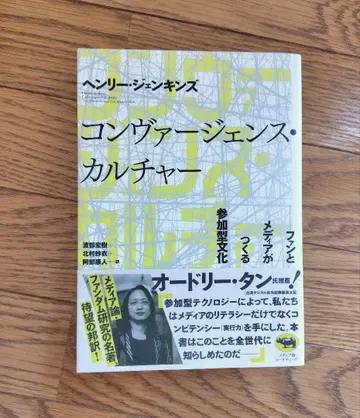 ヘンリー・ジェンキンズ
コンヴァージェンス・
カルチャー
ファンと
メディアが
つくる
参加型文化
渡部宏樹
北村紗衣
阿部康人
訳
オードリー・タン氏推薦!
参加型テクノロジーによって、私たち
はメディアのリテラシーだけでなくコ
ンピテンシー(実行力)を手にした。本
書はこのことを全世代に
知らしめたのだ——
メディア論・
ファンダム研究の名著、
待望の邦訳!